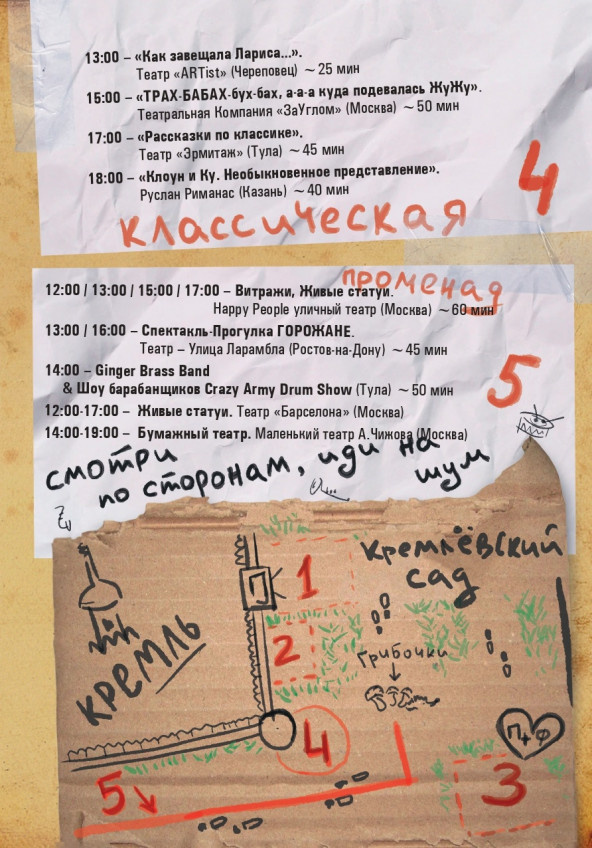 13:00 – «Как завещала Лариса...».
Театр «ARTist» (Череповец) ~ 25 мин
15:00 – «ТРАХ-БАБАХ-бух-бах, а-а-а куда подевалась ЖуЖу».
Театральная Компания «ЗаУглом» (Москва) ~ 50 мин
17:00 – «Рассказки по классике».
Театр «Эрмитаж» (Тула) ~ 45 мин
18:00 – «Клоун и Ку. Необыкновенное представление».
Руслан Риманас (Казань) ~ 40 мин
4
классическая
променад
12:00 / 13:00 / 15:00 / 17:00 – Витражи, Живые статуи.
Happy People уличный театр (Москва) ~ 60 мин
13:00 / 16:00 – Спектакль-Прогулка ГОРОЖАНЕ.
Театр – Улица Ларамбла (Ростов-на-Дону) ~ 45 мин
14:00 – Ginger Brass Band
& Шоу барабанщиков Crazy Army Drum Show (Тула) ~ 50 мин
5
12:00-17:00 – Живые статуи. Театр «Барселона» (Москва)
14:00-19:00 – Бумажный театр. Маленький театр А.Чижова (Москва)
смотри
по сторонам, иди на
шум
Кремлёвский
сад
1
2
Грибочки
Кремль
4
П+Ф
5
3